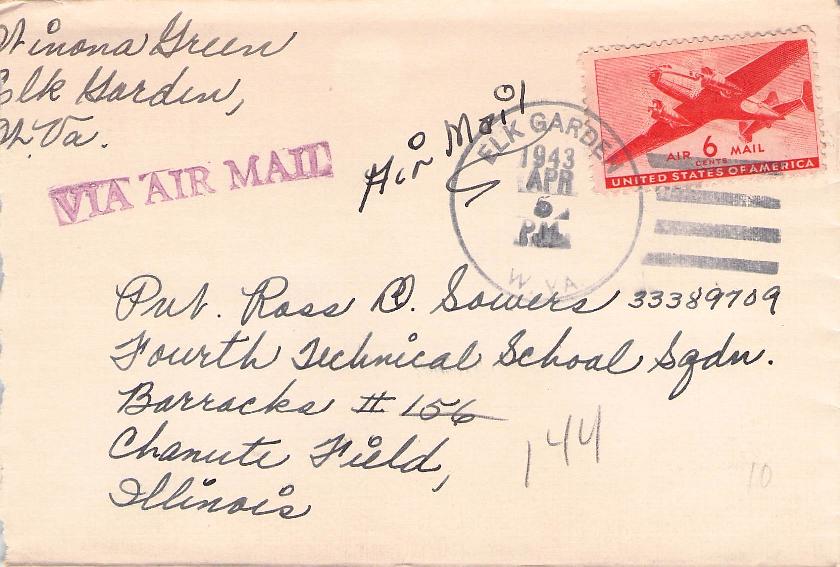 Winona Green
Elk Garden,
W.Va.
VIA AIR MAIL
Air Mail
ELK GARDEN
1943
APR
5
P.M.
W. VA.
AIR 6 MAIL
CENTS
UNITED STATES OF AMERICA
Pvt. Ross O. Sowers 33389709
Fourth Technical School Sqdn.
Barracks # 156
144
Chanute Field,
Illinois
10